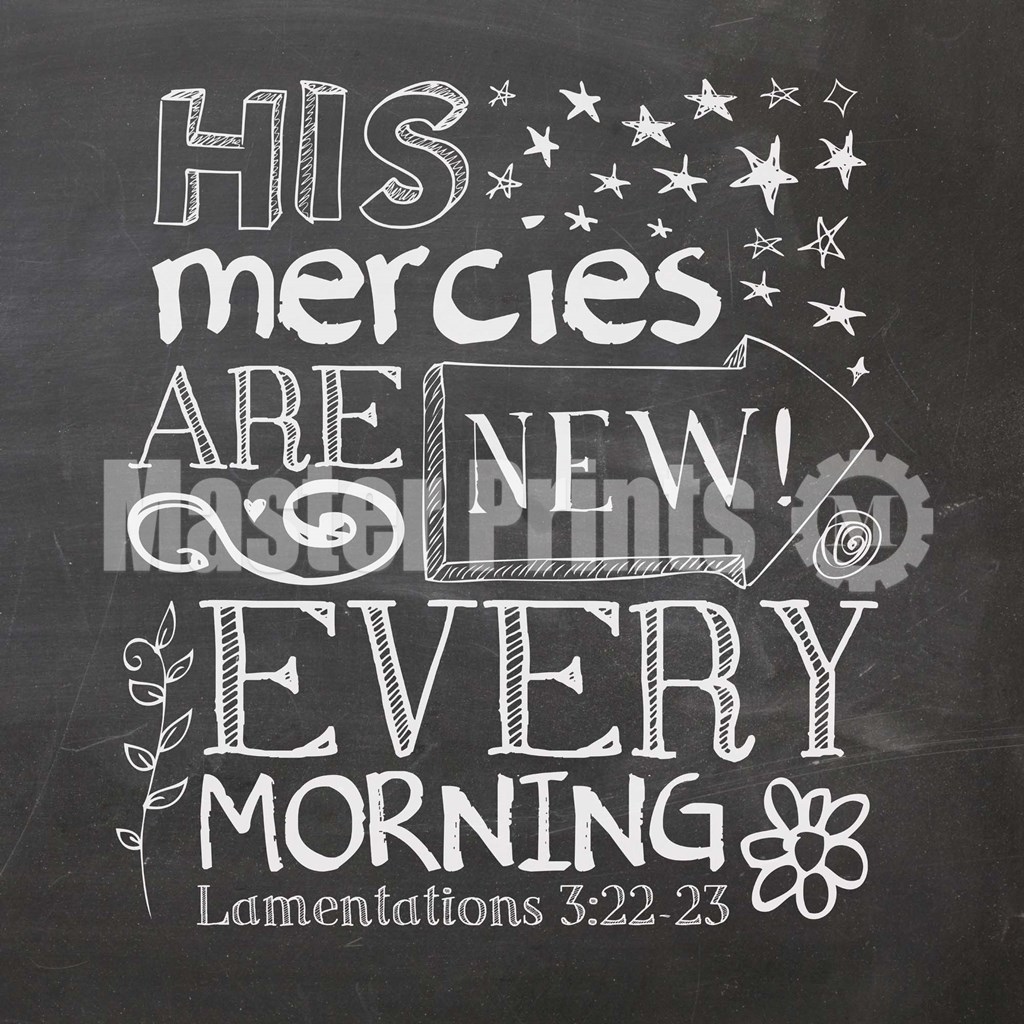 HIS
mercies
ARE NEW!
Master Prints M
EVERY
MORNING
Lamentations 3:22-23